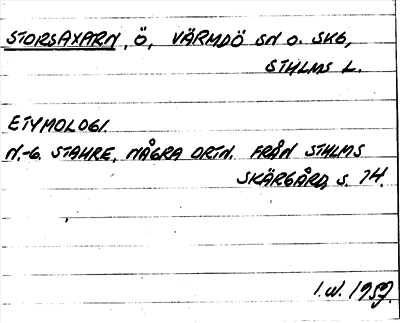 STORSAXARN, Ö, VÄRMDÖ SN O. SKG,
STHLMS L.
ETYMOLOGI.
N.-G. STAHRE, NÅGRA ORTN. FRÅN STHLMS
SKÄRGÅRD, S. 74.
I.W. 1959.